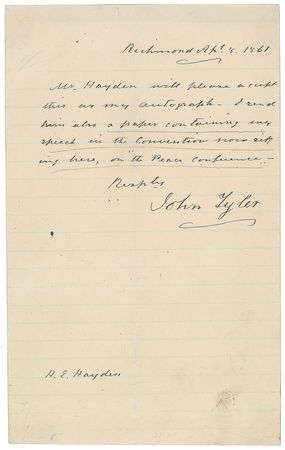 Richmond Apl. 8. 1861
Mr. Hayden will please accept
this as my autograph - I send
him also a paper containing my
speech in the Convention now sit
ing here, on the Peace conference -
Resptls
John Tyler
H. E. Hayden